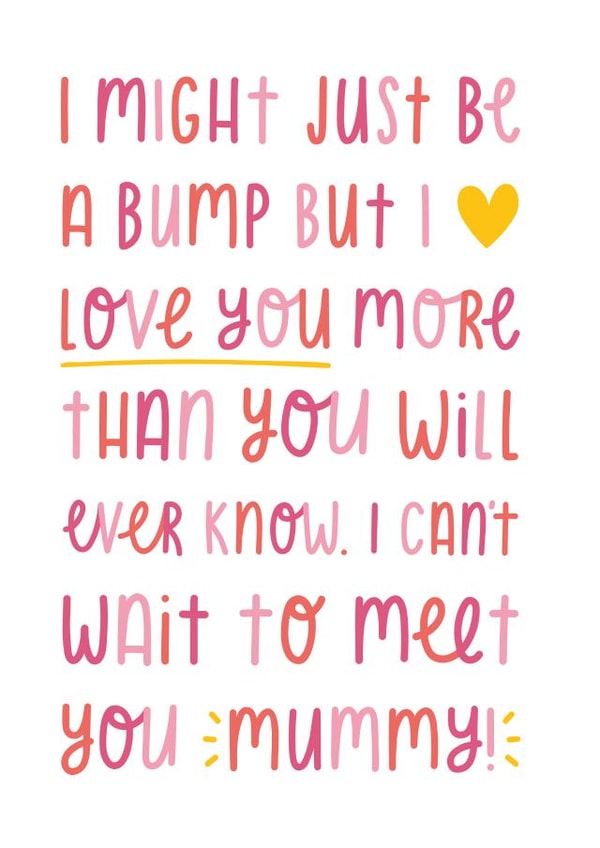 I MIGHT JUST BE
A BUMP BUT I
LOVE YOU MORE
THAN YOU WILL
EVER KNOW. I CAN'T
WAIT TO MEET
YOU MUMMY!